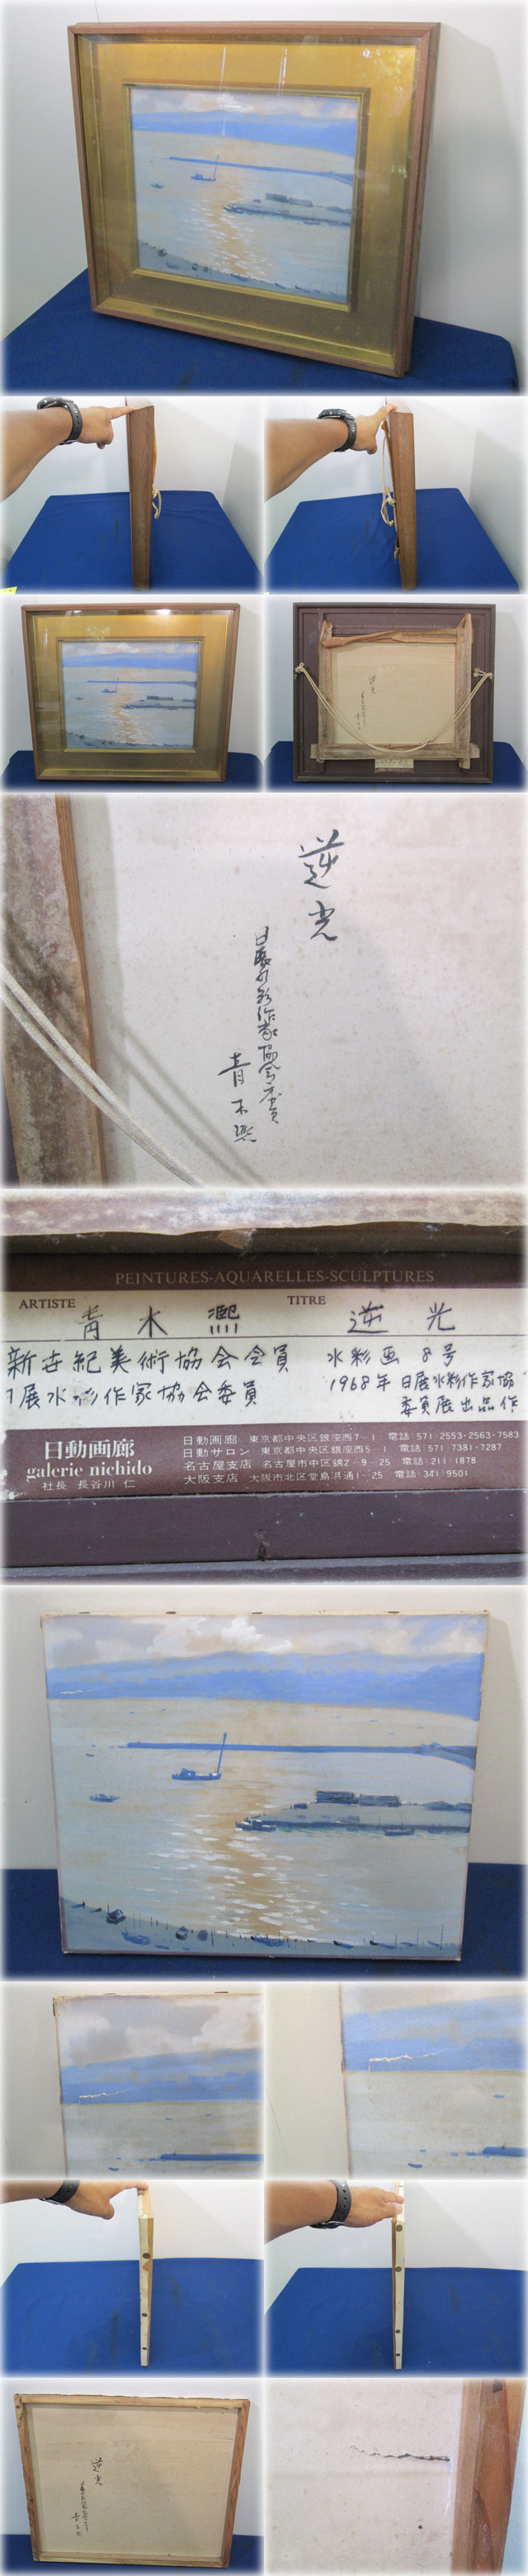 逆光
日展水彩作家協会委員
青木熙
PEINTURES-AQUARELLES-SCULPTURES
ARTISTE 青木 熙 TITRE 逆光
新世紀美術協会会員 水彩画 8号
日展水彩作家協会委員 1968年 日展水彩作家協
委員展出品作
日動画廊 日動画廊 東京都中央区銀座西7-1 電話 571-2553・2563・7583
galerie nichido 日動サロン 東京都中央区銀座西5-1 電話 571-7381・7287
社長 長谷川 仁 名古屋支店 名古屋市中区錦2-9-25 電話 211-1878
大阪支店 大阪市北区堂島浜通1-25 電話 341-9501
逆光
日展水彩作家協会委員
青木熙